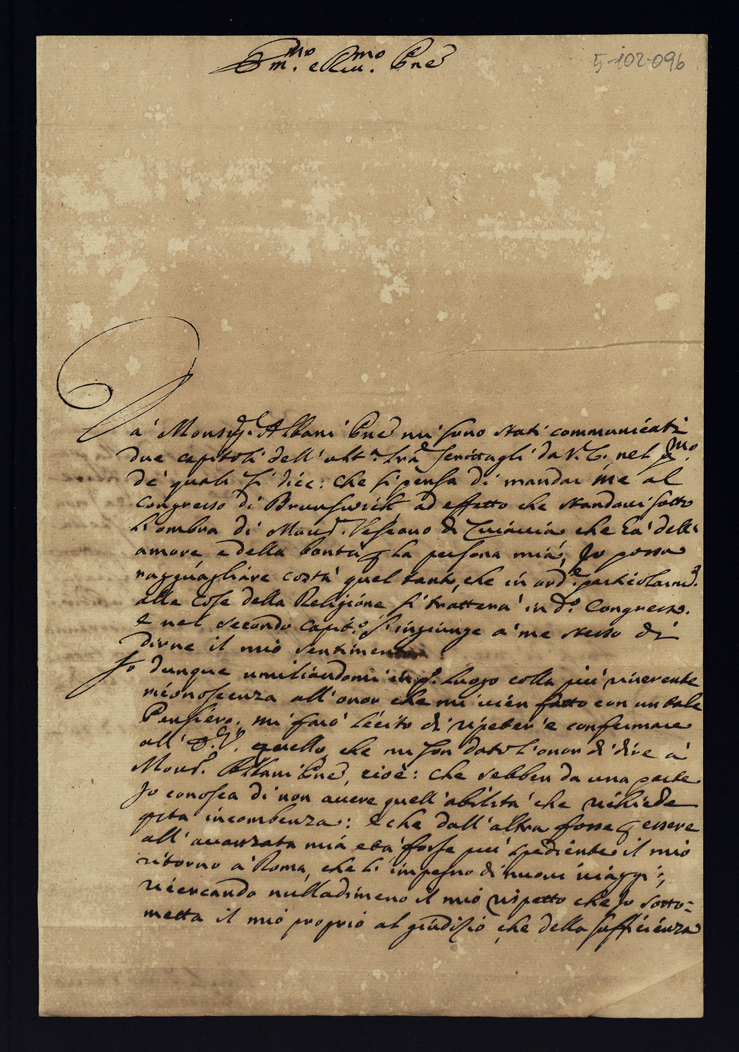 Em.mo e Rev.mo Pñe
5-102-096
Da' Monsig.r Albani Pñe mi sono stati communicati
due capitoli dell'ult.a scrittagli da V. E. nel p.mo
de' quali si dice: che si pensa di mandar me al
Congresso di Brunswick ad effetto che standovi sotto
l'ombra di Mons.r Vescovo di che ha' dell'
amore e della bontà p la persona mia, Io possa
ragguagliare costà quel tanto, che in ord.e particolarm.e
alle cose della Religione si tratterà in d.o Congresso.
E nel secondo capit.o s'ingiunge a' me stesso di
dirne il mio sentimento
Io dunque umiliandomi in p.o luogo colla più riverente
riconoscenza all'onor che mi vien fatto con un tale
Pensiero, mi farò lecito di ripeter' e confermare
all' E. V. quello, che mi son dato l'onor di dire a'
Mons.r Albani Pñe, cioè: che sebben da una parte
Io conosca di non avere quell'abilità che richiede
q̃sta incombenza: e che dall'altra fosse p essere
all'avanzata mia età forse più spediente il mio
ritorno a' Roma, che l'impegno di nuovi viaggi;
ricercando nulladimeno il mio rispetto che Io sotto=
metta il mio proprio al giudizio, che della sufficienza